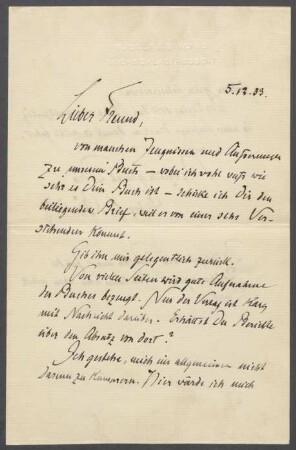 5.12.33.
Lieber Freund,
von manchen Zeugnissen und Äusserungen
zu "unserem" Buch – wobei ich sehr weiss wie
sehr es Dein Buch ist – schicke ich Dir den
beiliegenden Brief, weil er von einer sehr Ver-
stehenden kommt.
Gib ihn mir gelegentlich zurück.
Von vielen Seiten wird gute Aufnahme
des Buches bezeugt. Nur der Verlag ist karg
mit Nachricht darüber. Erhältst Du Berichte
über den Absatz von dort?
Ich gestehe, mich im allgemeinen nicht
darum zu kümmern. Hier würde ich mich